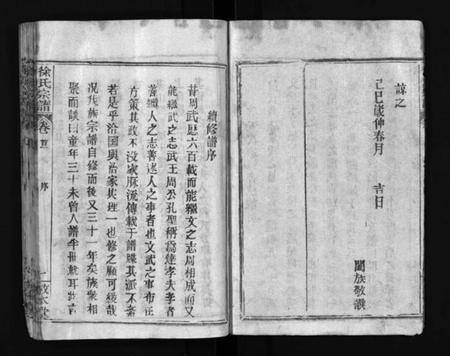 諒之
己巳歲仲春月 吉日
闔族敬譔
續修譜序
昔周武歷六百載而能繼文之志周相成而又
能繼武之志武王周公孔聖稱爲達孝夫孝者
善繼人之志善述人之事者也文武之事布在
方策其政不没家脉流傳載于譜牒其派不紊
若是乎治國與治家其理一也修之顧可緩哉
况我族宗譜自修而後又三十一年矣族衆相
聚而談曰童年三十未曾入譜牛冊載耳
徐氏宗譜
卷
序
二
敦本堂